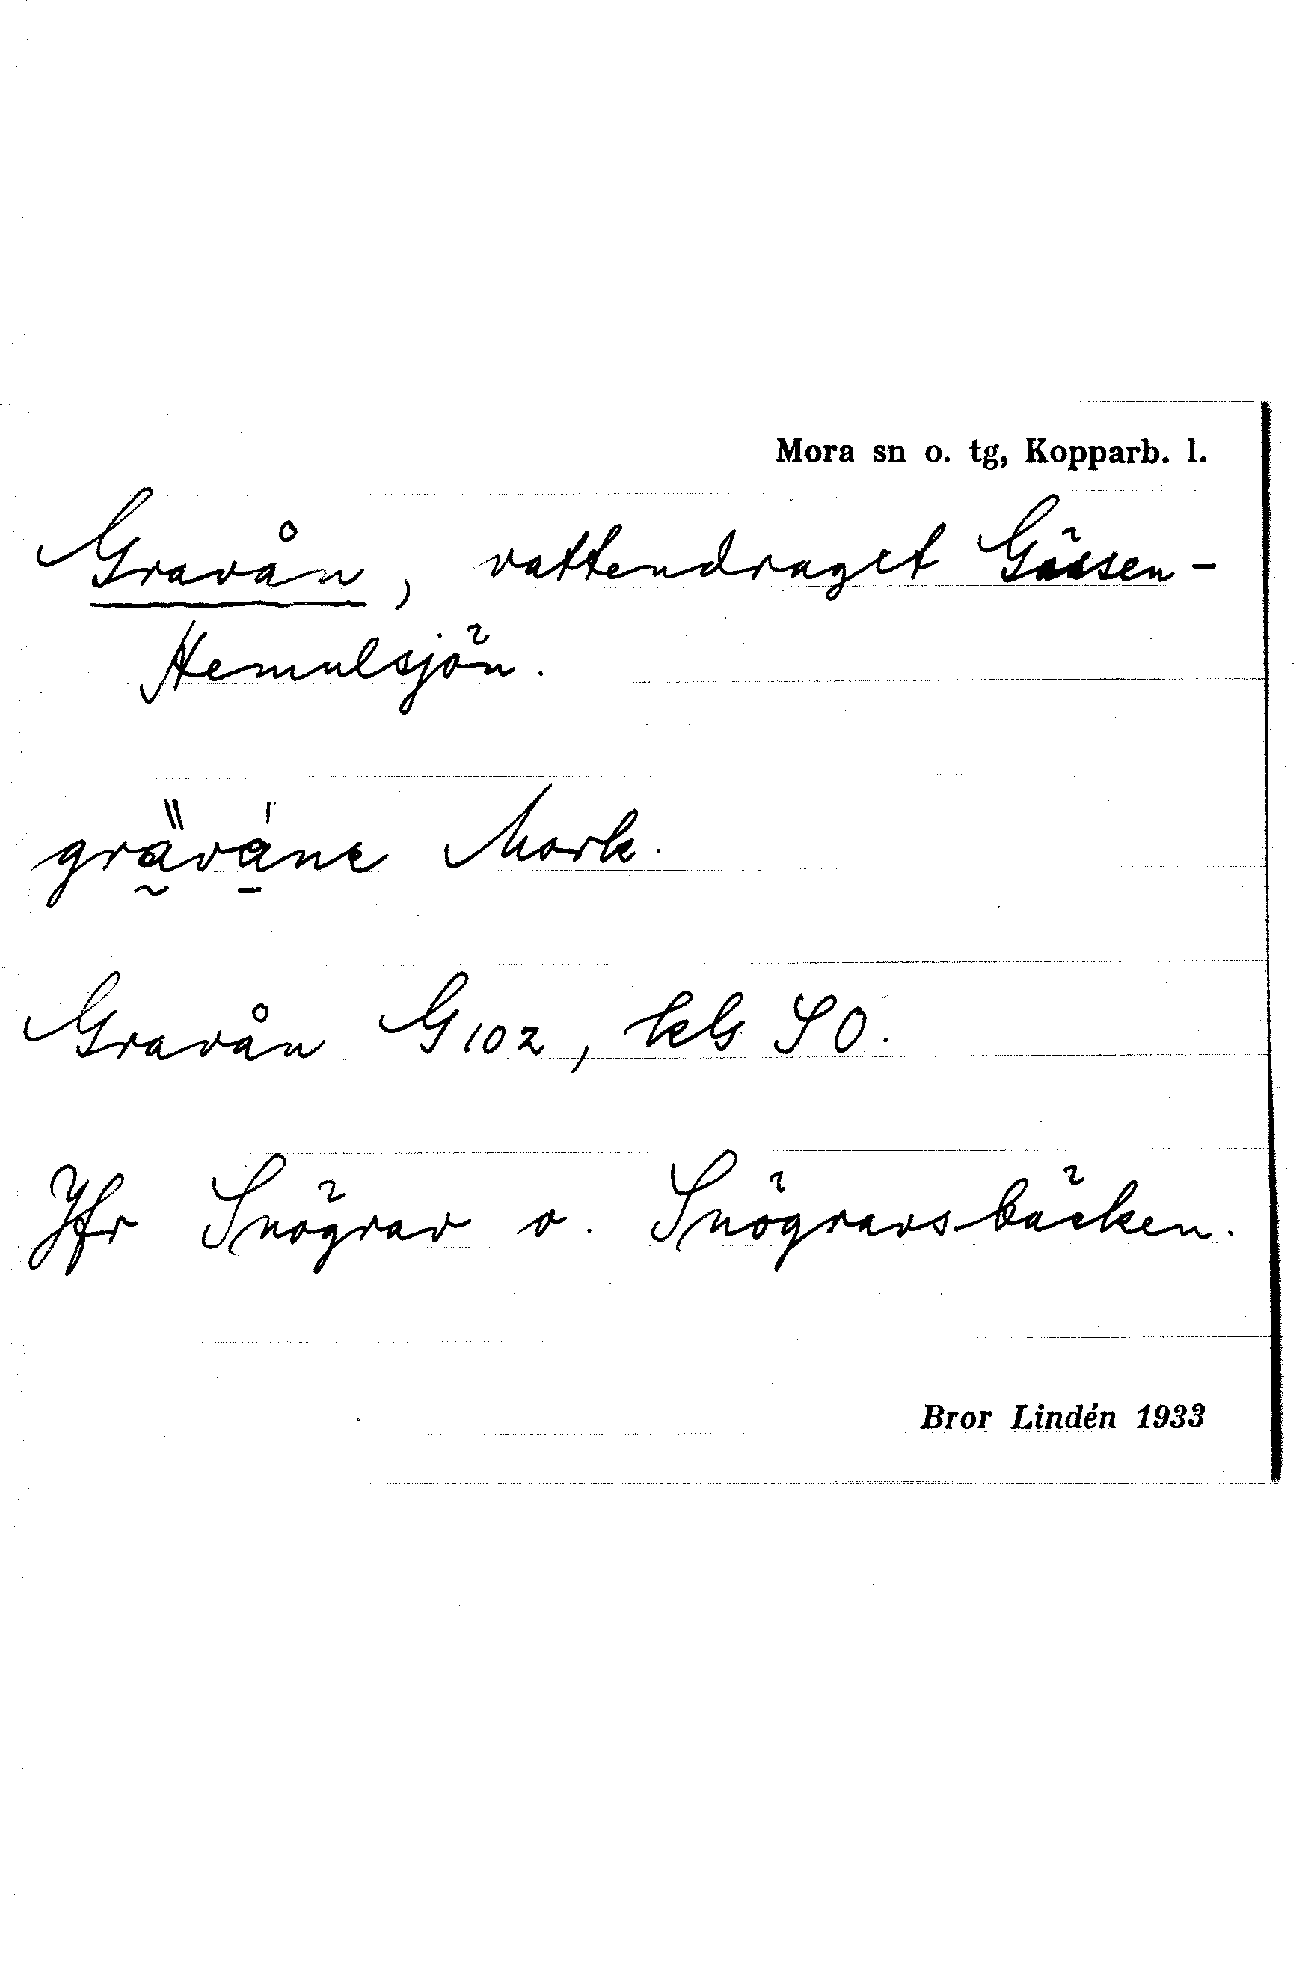 Mora sn o. tg, Kopparb. l.
Gravån, vattendraget Gässen-
Hemulsjön.
Mork.
Gravån G 102, kls SO.
Jfr Snögrav o. Snögravsbäcken.
Bror Lindén 1933